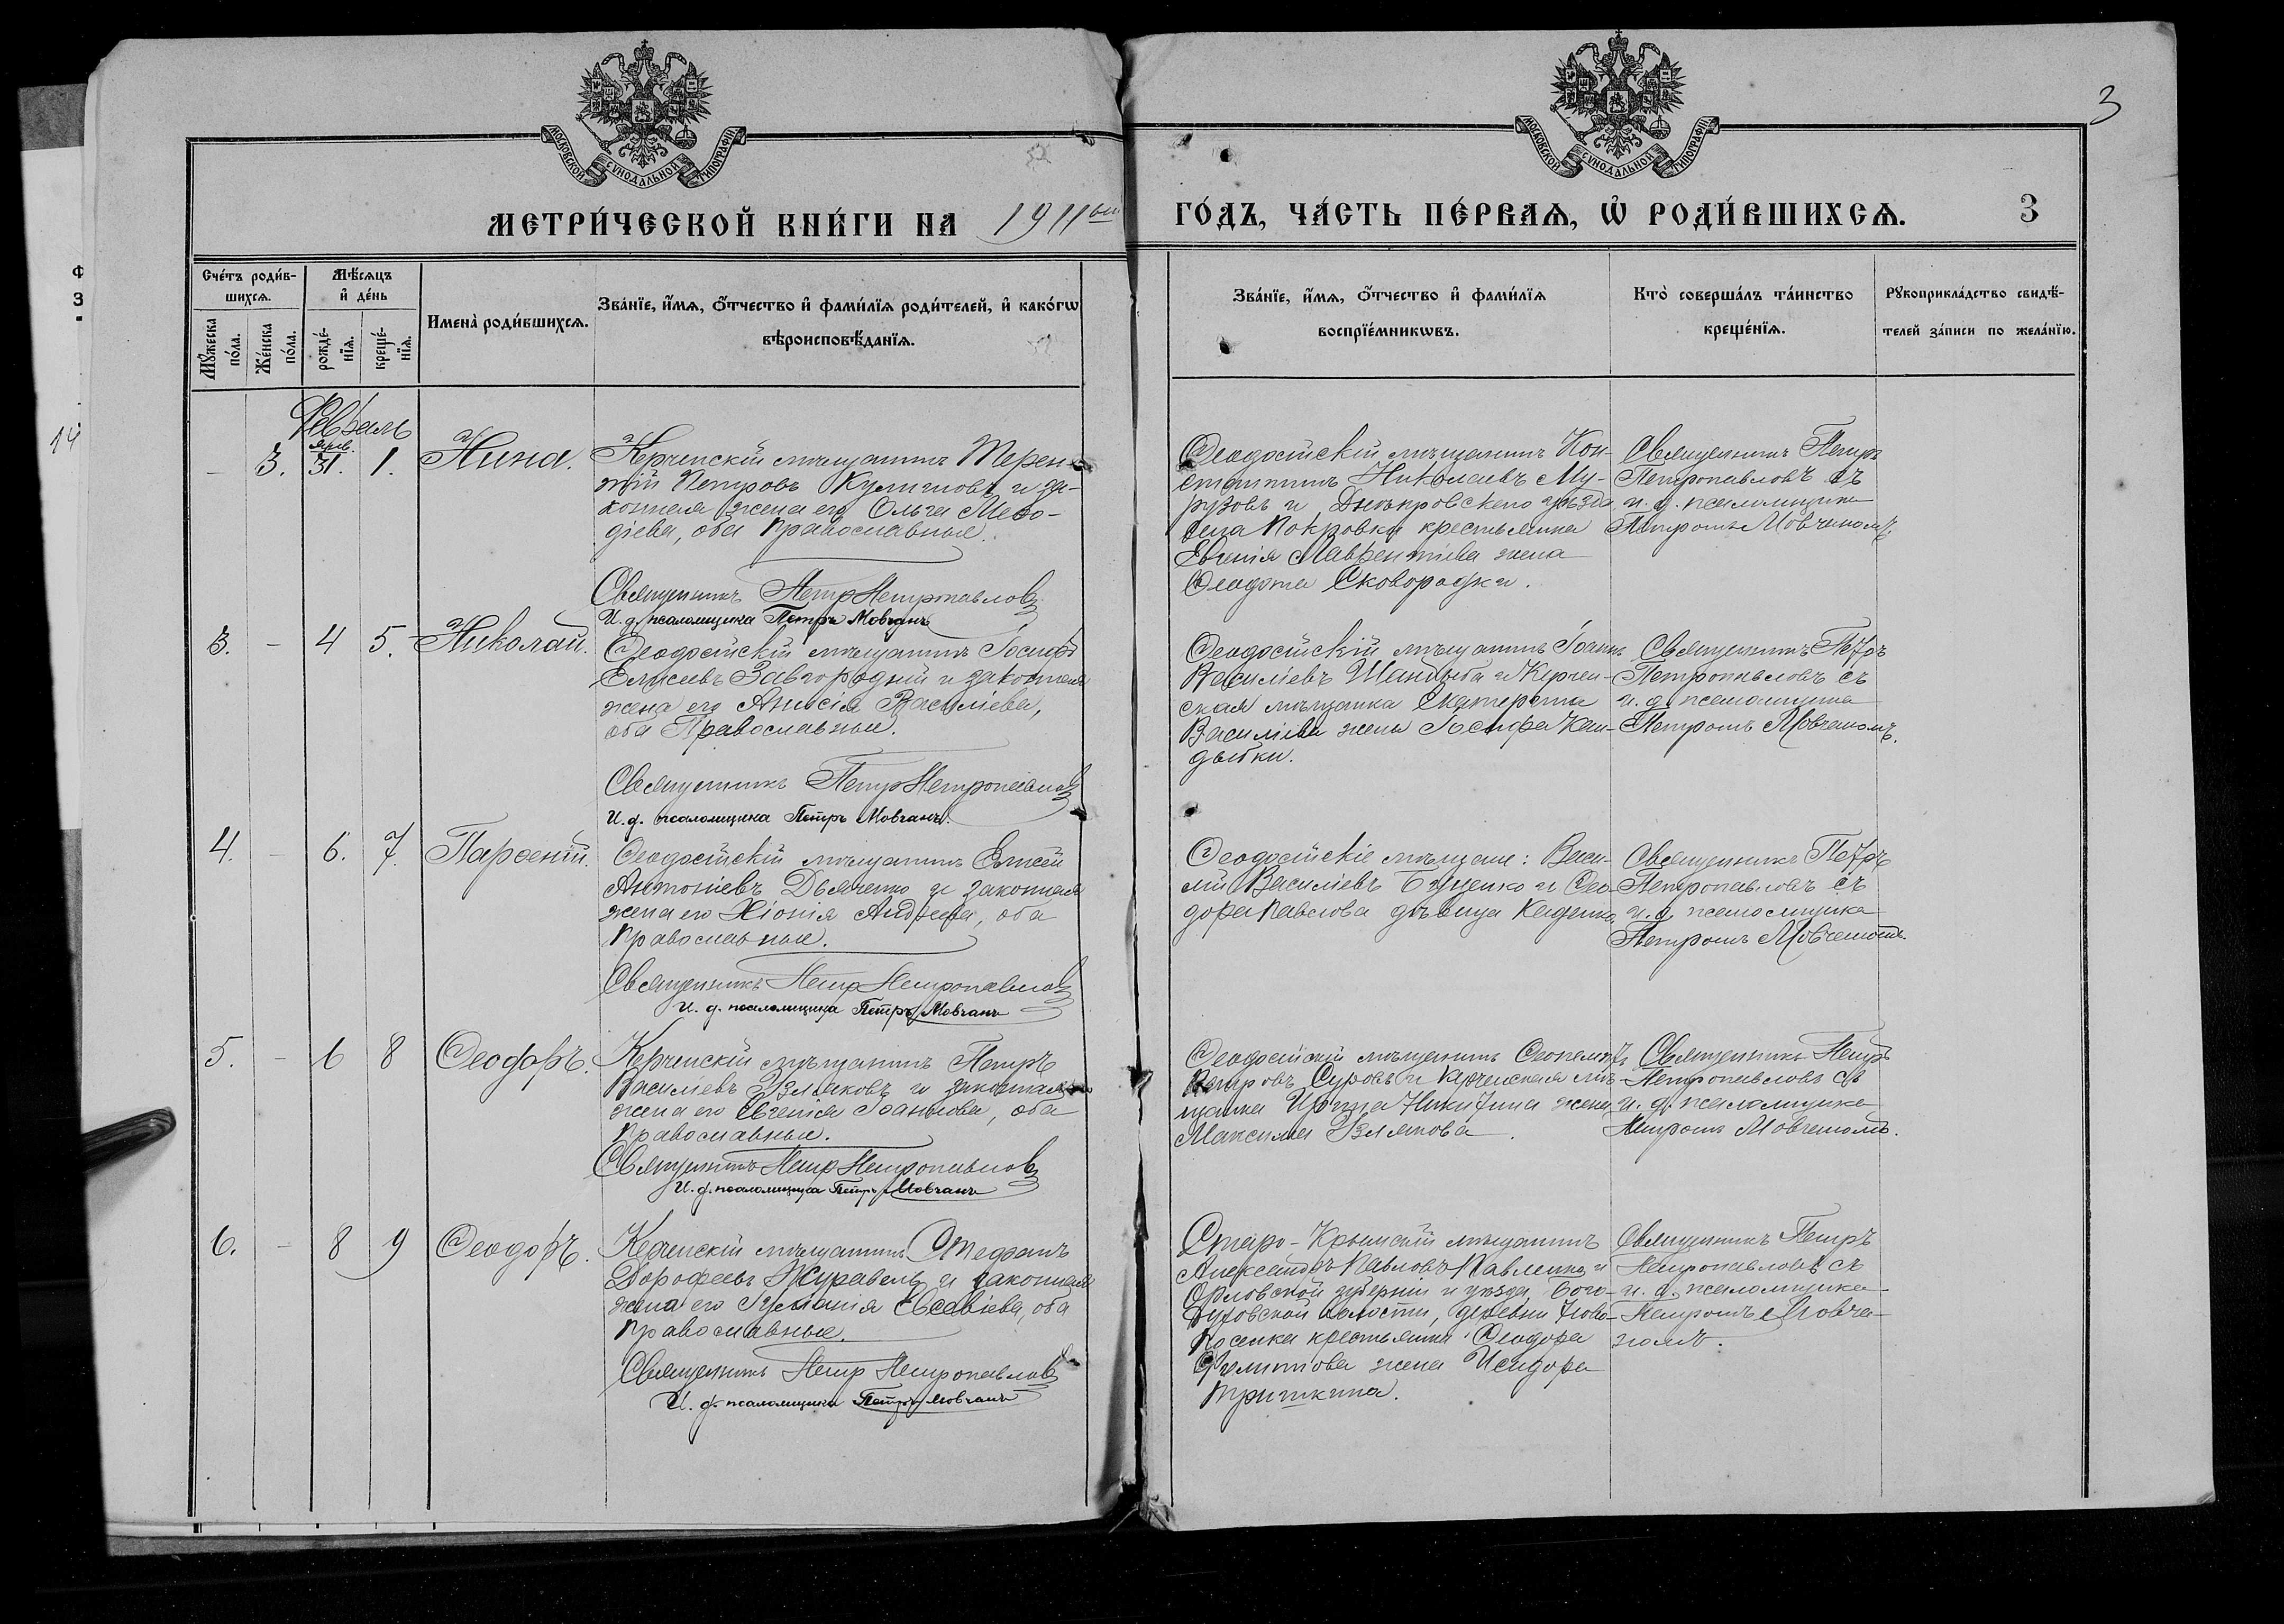 3
МОСКОВСКОЙ СУНОДАЛЬНОЙ ТИПОГРАФІИ
МОСКОВСКОЙ СУНОДАЛЬНОЙ ТИПОГРАФІИ
МЕТРИ́ЧЕСКОЙ КНИ́ГИ НА 1911ый ГО́ДЪ, ЧА́СТЬ ПЕ́РВАѦ, Ѡ РОДИ́ВШИХСѦ. 3
Сче́тъ роди́в-
шихсѧ.
Мꙋ́жеска
по́ла.
Же́нска
по́ла.
Мѣ́сѧцъ
и҆ де́нь
рожде́-
нїѧ.
креще́-
нїѧ.
Имена̀ роди́вшихсѧ.
Зва́нїе, и҆́мѧ, ѻ҆́тчество и҆ фами́лїѧ роди́телей, и҆ како́гѡ
вѣроисповѣ́данїѧ.
Зва́нїе, и҆́мѧ, ѻ҆́тчество и҆ фами́лїѧ
воспрїе́мникѡвъ.
Кто̀ соверша́лъ та́инство
креще́нїѧ.
Рꙋкоприкла́дство свидѣ́-
телей за́писи по жела́нїю.
14
Февраль
- 3. Янв. 31. 1. Нина.
Керченскій мѣщанинъ Терен-
тій Петровъ Кулиниовъ и за-
конная жена его Ольга Меѳо-
діева, оба Православные.
Священникъ Петр Петропавлов
И. д. псаломщика Петръ Мовчанъ
Ѳеодосійскій мѣщанинъ Кон-
стантинъ Николаевъ Му-
рузовъ и Днѣпровскаго уѣзда
села Покровки крестьянина
Евгенія Лаврентіева жена
Ѳеодота Сковородка.
Священникъ Петръ
Петропавловъ съ
и. д. псаломщика
Петромъ Мовчаномъ.
3. - 4 5. Николай.
Ѳеодосійскій мѣщанинъ Іосифъ
Елисеевъ Завгородній и законная
жена его Анисія Василіева,
оба Православные.
Священникъ Петр Петропавлов
И. д. псаломщика Петръ Мовчанъ.
Ѳеодосійскій мѣщанинъ Іоаннъ
Василіевъ Шандыба и Керчен-
ская мѣщанка Екатерина
Василіева жена Іосифа Кан-
дыбки.
Священникъ Петръ
Петропавловъ съ
и. д. псаломщика
Петромъ Мовчаномъ.
4. - 6. 7. Парѳеній.
Ѳеодосійскій мѣщанинъ Елисей
Антоніевъ Дьяченко и законная
жена его Хіонія Андреева, оба
Православные.
Священникъ Петр Петропавлов
И. д. псаломщика Петръ Мовчанъ
Ѳеодосійскіе мѣщане: Васи-
лій Василіевъ Буценко и Ѳео-
дора Павлова дѣвица Каденко.
Священникъ Петръ
Петропавловъ съ
и. д. псаломщика
Петромъ Мовчаномъ.
5. - 6 8 Ѳеодоръ.
Керченскій мѣщанинъ Петръ
Василіевъ Взлыковъ и законная
жена его Евгенія Іоаннова, оба
Православные.
Священникъ Петр Петропавлов
И. д. псаломщика Петръ Мовчанъ
Ѳеодосійскій мѣщанинъ Ѳеопемптъ
Петровъ Суровъ и Керченская мѣ-
щанка Ирина Никитина жена
Максима Взлыкова.
Священникъ Петръ
Петропавловъ съ
и. д. псаломщика
Петромъ Мовчаномъ.
6. - 8 9 Ѳеодоръ.
Керченскій мѣщанинъ Стефанъ
Дорофеевъ Журавель и законная
жена его Іуліанія Евсевіева, оба
Православные.
Священникъ Петр Петропавлов
И. д. псаломщика Петръ Мовчанъ
Старо-Крымскій мѣщанинъ
Александръ Павловъ Павленко и
Орловской губерніи и уѣзда, Бого-
духовской волости, деревни Ново-
поселка крестьянина Ѳеодора
Филиппова жена Исидора
Тришкина.
Священникъ Петръ
Петропавловъ съ
и. д. псаломщика
Петромъ Мовча-
номъ.